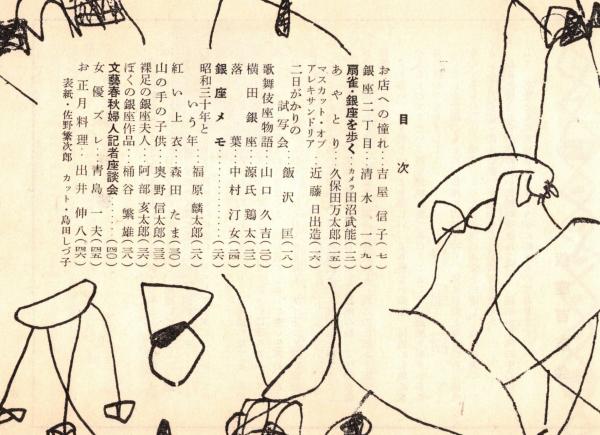 目次
お店への憧れ‥吉屋信子(七)
銀座二丁目‥清水一(九)
扇雀・銀座を歩く‥カメラ田沼武能(二)
あやとり‥久保田万太郎(五)
マスカット・オブ・アレキサンドリア‥近藤日出造(六)
二日がかりの試写会‥飯沢匡(八)
歌舞伎座物語‥山口久吉(二0)
横田銀座‥源氏鶏太(三)
落葉‥中村汀女(四)
銀座メモ‥(六)
昭和三十年という年‥福原麟太郎(六)
紅い上衣‥森田たま(三0)
山の手の子供‥奥野信太郎(三)
裸足の銀座夫人‥阿部亥太郎(三六)
ぼくの銀座作品‥桶谷繁雄(三八)
文藝春秋婦人記者座談会‥(四0)
女優ズレ‥青島一夫(四五)
お正月料理‥出井伸八(四六)
表紙・佐野繁次郎 カット・島田しづ子